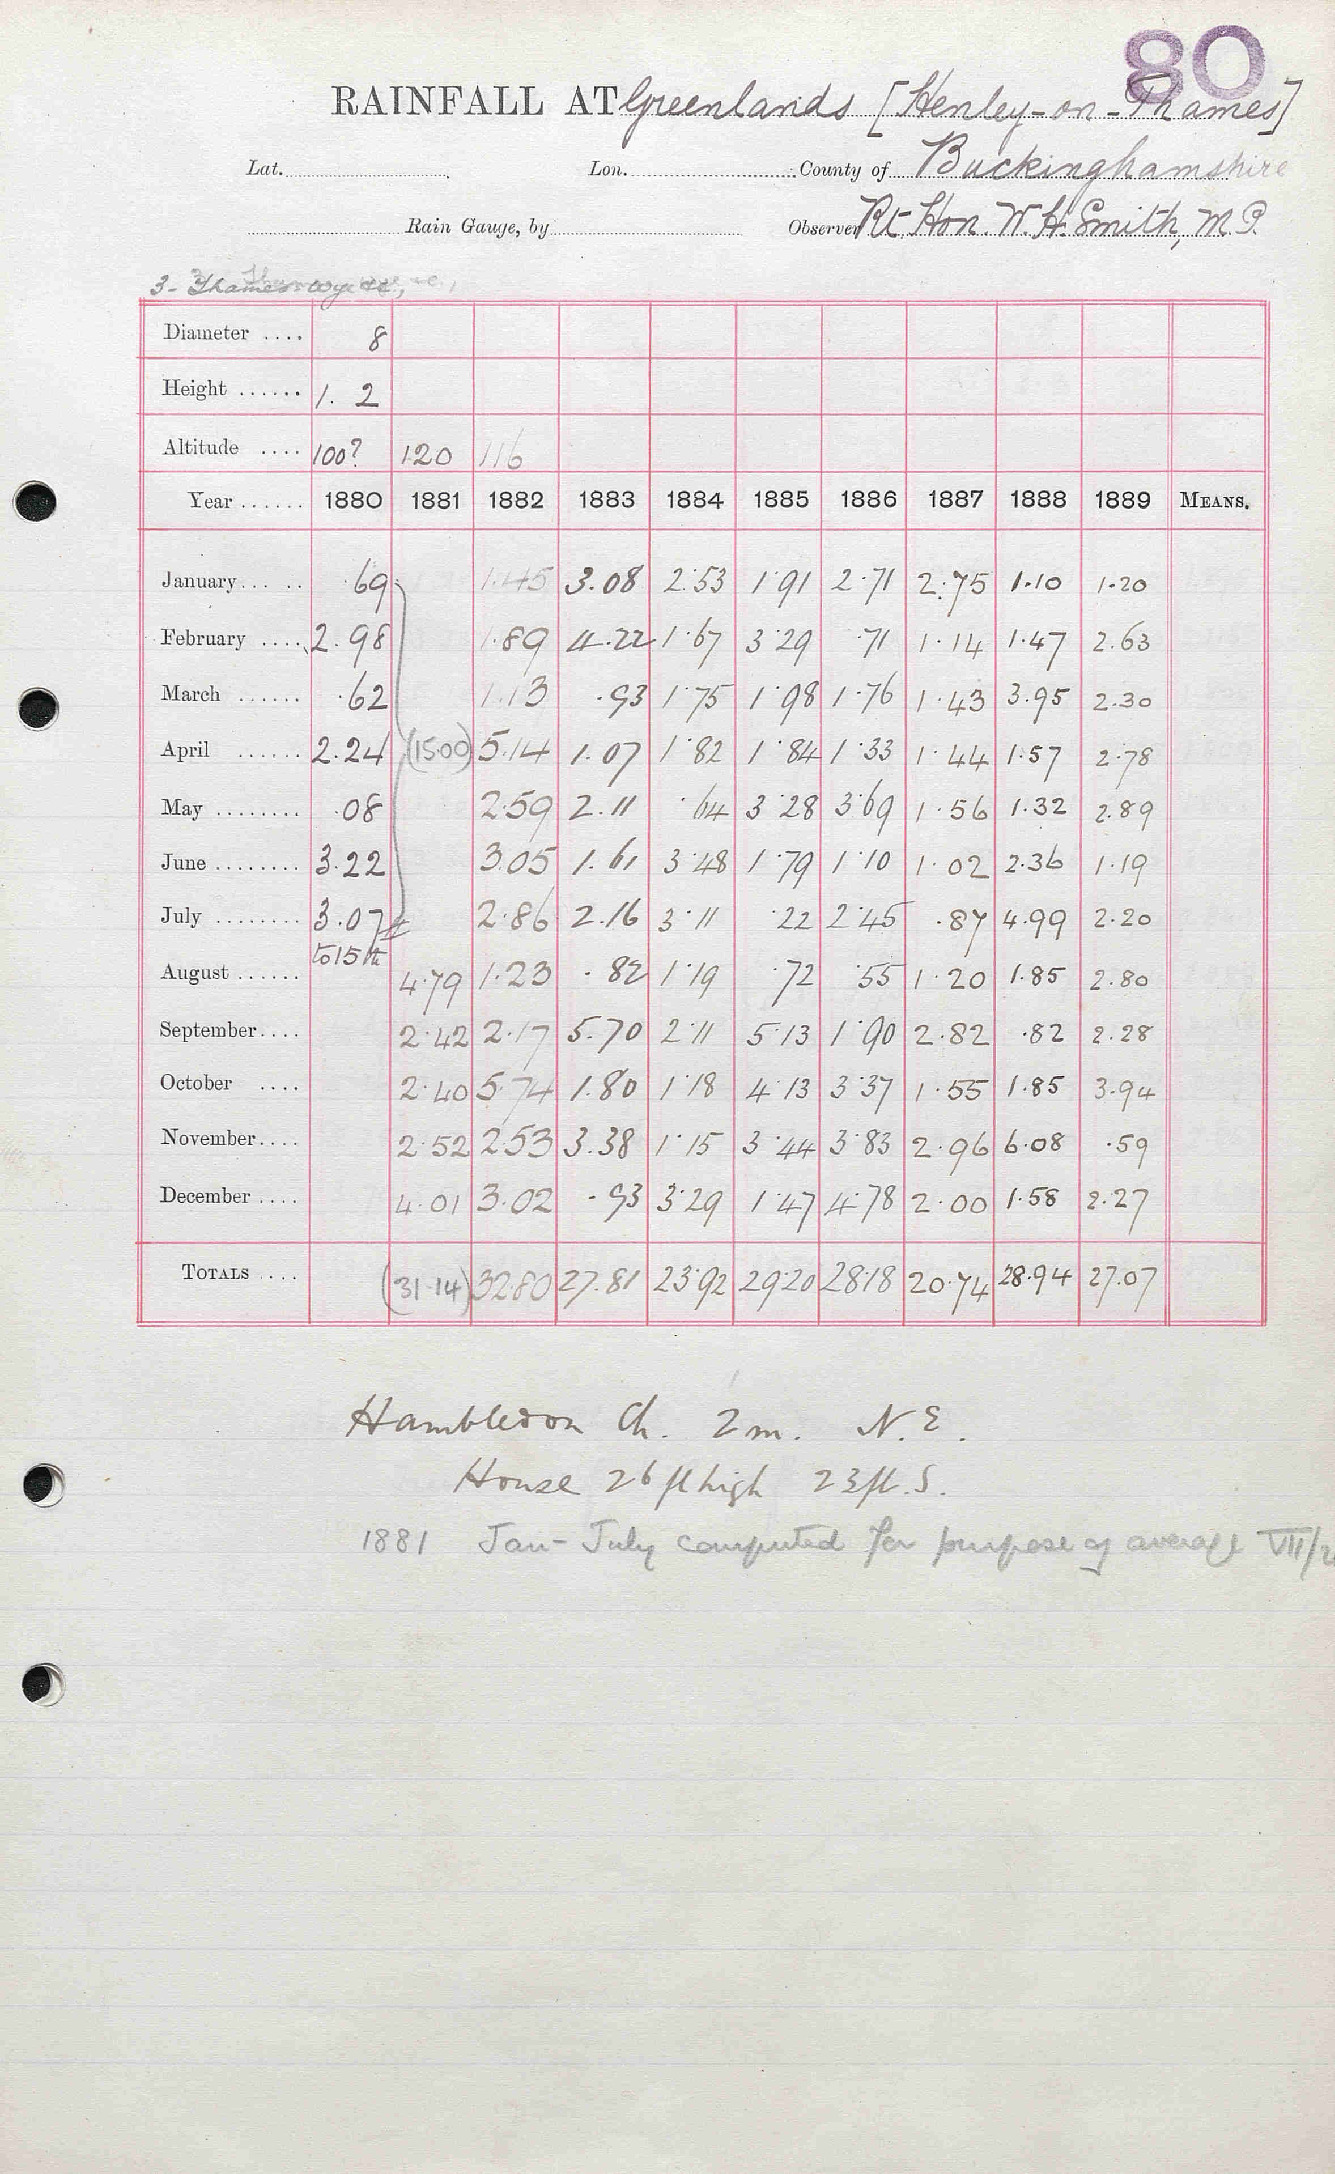 80
RAINFALL AT Greenlands [Henley-on-Thames]
Lat. Lon. County of Buckinghamshire
Rain Gauge, by Observer Rt. Hon. W. H. Smith, M.P.
3- Thames
Diameter .... 8
Height ...... 1. 2
Altitude .... 100? 120 116
Year ...... 1880 1881 1882 1883 1884 1885 1886 1887 1888 1889 MEANS.
January ... .69 1.45 3.08 2.53 1.91 2.71 2.75 1.10 1.20
February .... 2.98 1.89 4.22 1.67 3.29 .71 1.14 1.47 2.63
March ...... .62 1.13 .93 1.75 1.98 1.76 1.43 3.95 2.30
April ...... 2.24 (15.00) 5.14 1.07 1.82 1.84 1.33 1.44 1.57 2.78
May ........ .08 2.59 2.11 .64 3.28 3.69 1.56 1.32 2.89
June ........ 3.22 3.05 1.61 3.48 1.79 1.10 1.02 2.36 1.19
July ........ 3.07 2.86 2.16 3.11 .22 2.45 .87 4.99 2.20
to 15th
August ...... 4.79 1.23 .82 1.19 .72 .55 1.20 1.85 2.80
September .... 2.42 2.17 5.70 2.11 5.13 1.90 2.82 .82 2.28
October .... 2.40 5.74 1.80 1.18 4.13 3.37 1.55 1.85 3.94
November .... 2.52 2.53 3.38 1.15 3.44 3.83 2.96 6.08 .59
December .... 4.01 3.02 .93 3.29 1.47 4.78 2.00 1.58 2.27
TOTALS .... (31.14) 32.80 27.81 23.92 29.20 28.18 20.74 28.94 27.07
Hambledon Ch. 2 m. N.E.
House 26 ft high 23 ft. S.
1881 Jan - July computed for purpose of average VII/2